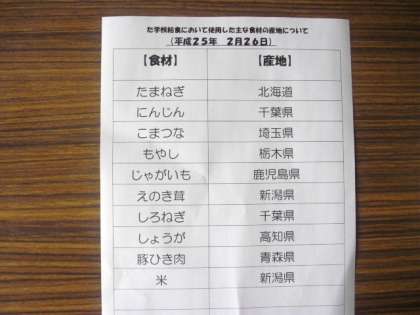 た学校給食において使用した主な食材の産地について
(平成25年 2月26日)
【食材】 【産地】
たまねぎ 北海道
にんじん 千葉県
こまつな 埼玉県
もやし 栃木県
じゃがいも 鹿児島県
えのき茸 新潟県
しろねぎ 千葉県
しょうが 高知県
豚ひき肉 青森県
米 新潟県